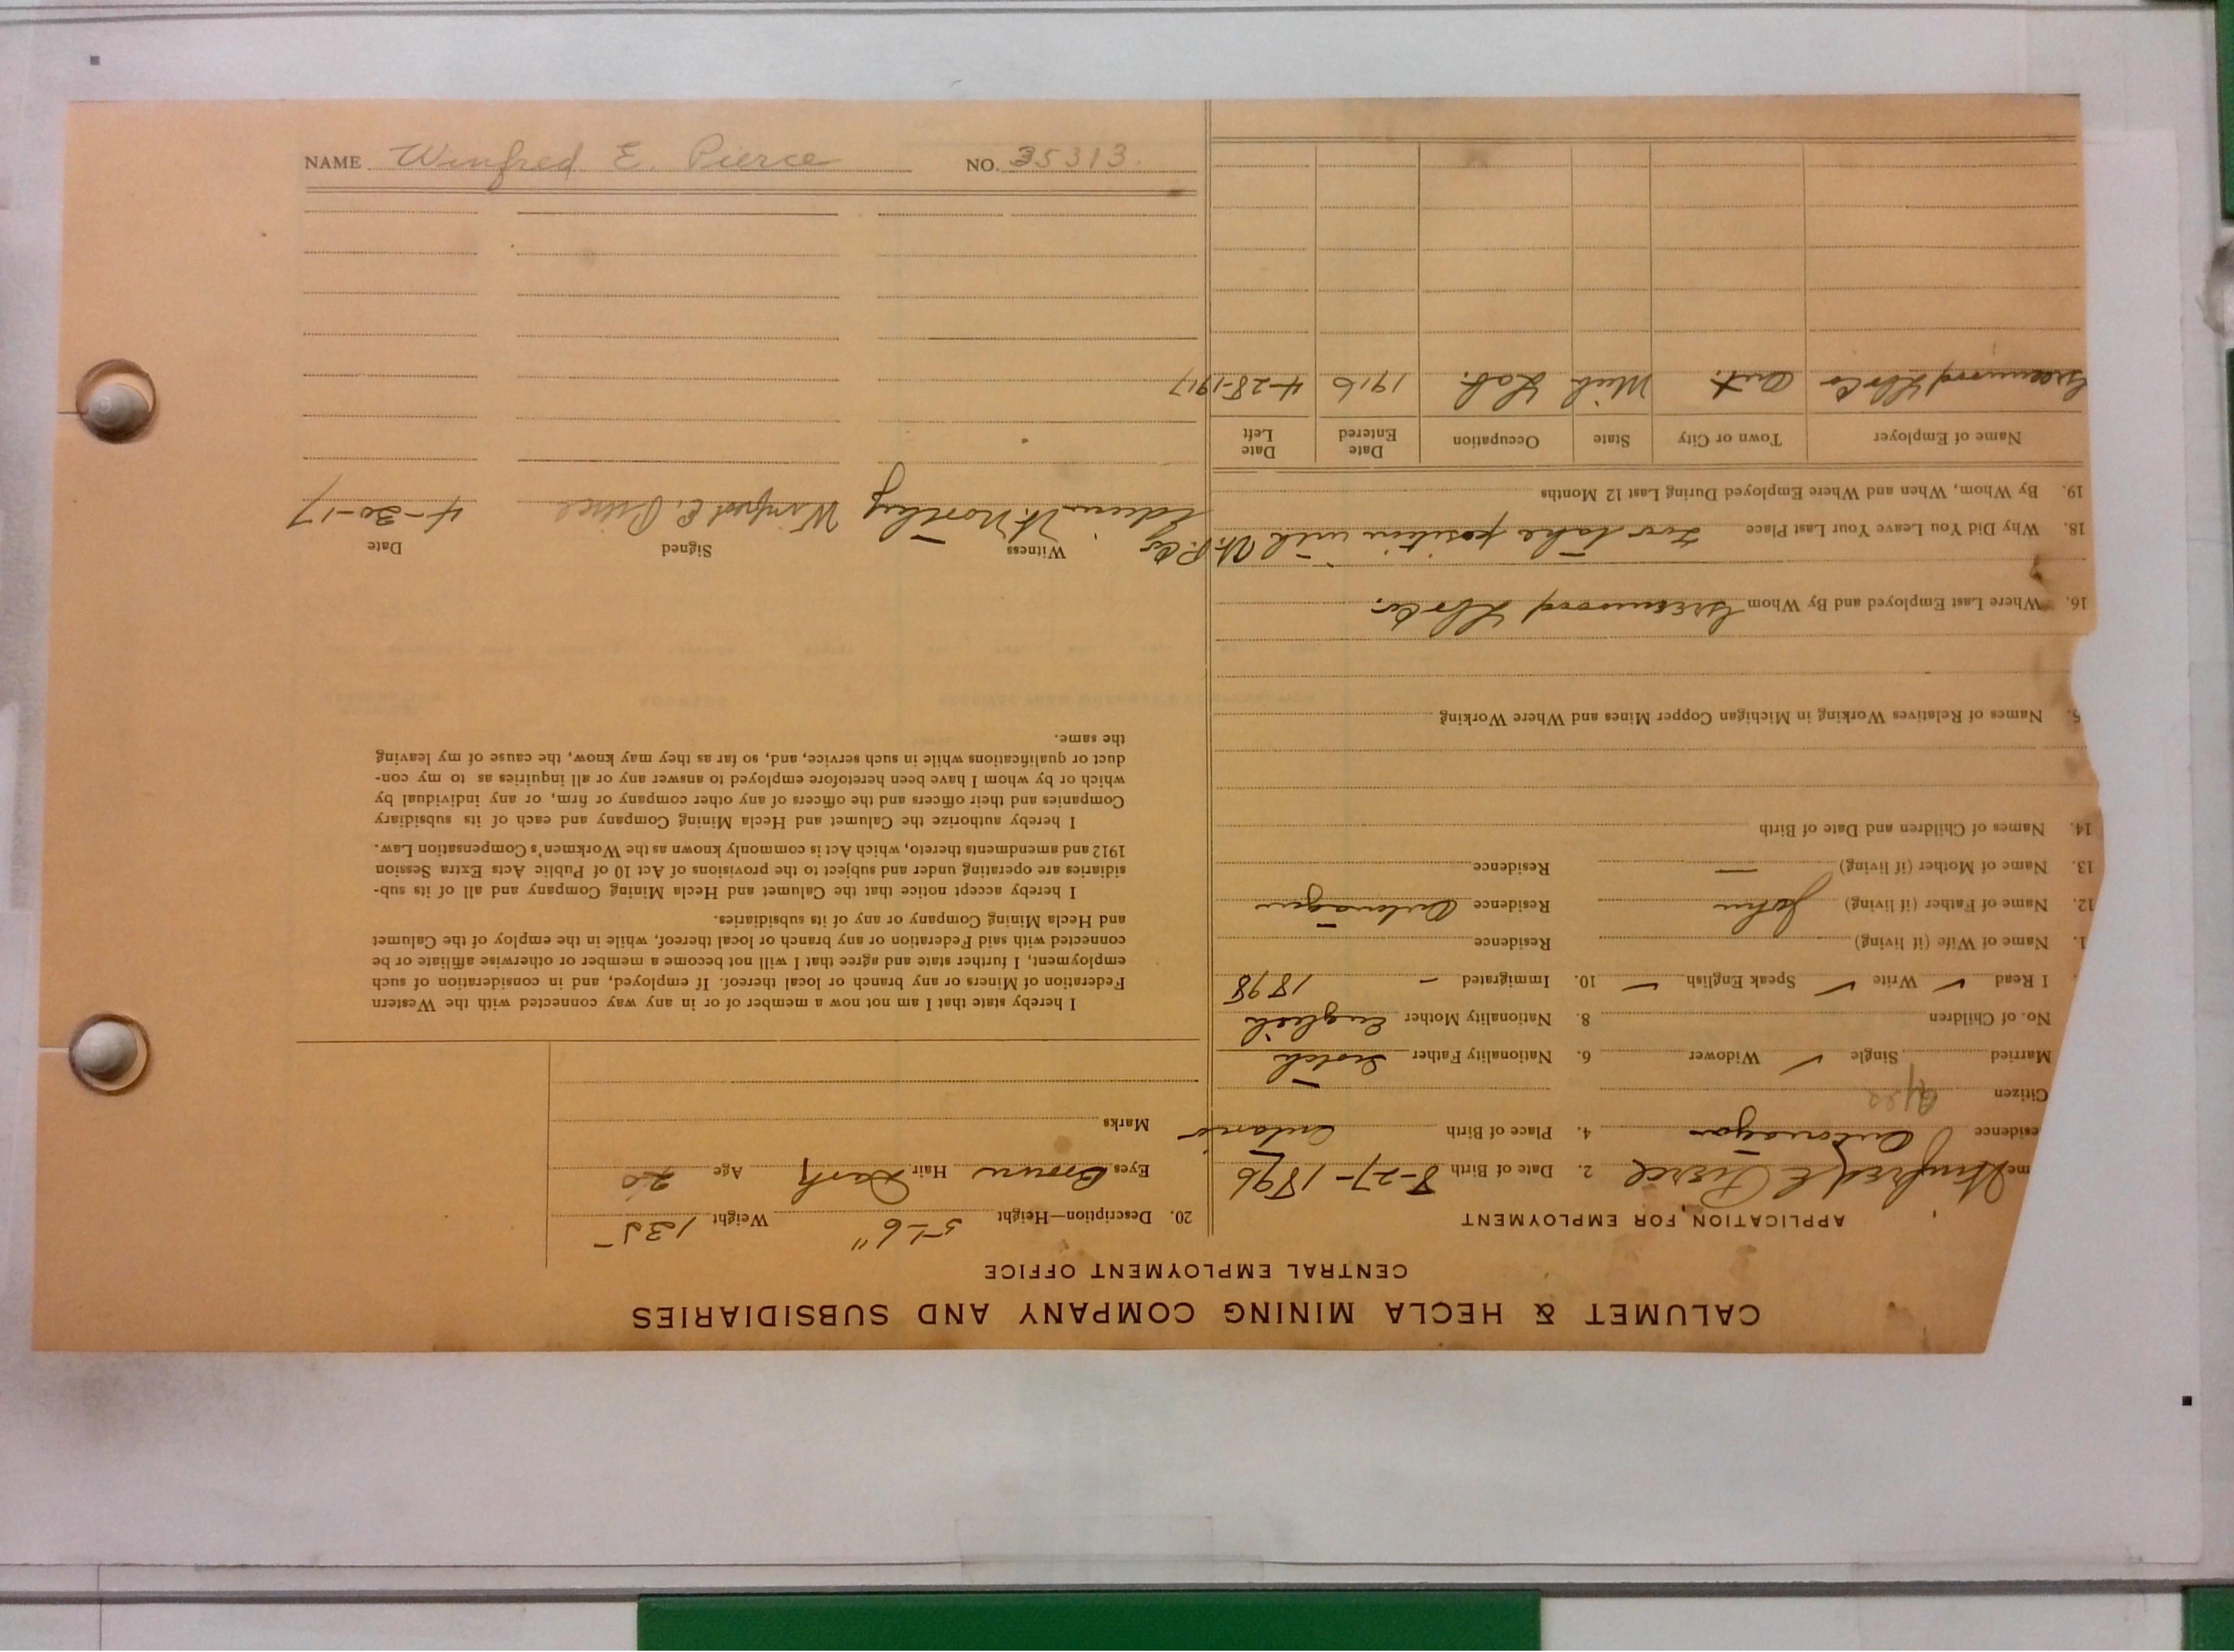 CALUMET & HECLA MINING COMPANY AND SUBSIDIARIES
CENTRAL EMPLOYMENT OFFICE
APPLICATION FOR EMPLOYMENT
me Winfred E Pierce 2. Date of Birth 8-27-1896
esidence Ontonagon 4. Place of Birth Ontario
Citizen Yes
Married Single ✓ Widower 6. Nationality Father Scotch
No. of Children 8. Nationality Mother English
I Read ✓ Write ✓ Speak English ✓ 10. Immigrated - 1898
1. Name of Wife (if living) Residence
12. Name of Father (if living) John Residence Ontonagon
13. Name of Mother (if living) — Residence
14. Names of Children and Date of Birth
5. Names of Relatives Working in Michigan Copper Mines and Where Working
16. Where Last Employed and By Whom Greenwood Lbr Co.
18. Why Did You Leave Your Last Place To take position with
19. By Whom, When and Where Employed During Last 12 Months
Name of Employer Town or City State Occupation Date Entered Date Left
Greenwood Lbr Co Ont. Mich Lab. 1916 4-28-1917
20. Description—Height 5-6" Weight 135
Eyes Brown Hair Dark Age 20
Marks
I hereby state that I am not now a member of or in any way connected with the Western
Federation of Miners or any branch or local thereof. If employed, and in consideration of such
employment, I further state and agree that I will not become a member or otherwise affiliate or be
connected with said Federation or any branch or local thereof, while in the employ of the Calumet
and Hecla Mining Company or any of its subsidiaries.
I hereby accept notice that the Calumet and Hecla Mining Company and all of its sub-
sidiaries are operating under and subject to the provisions of Act 10 of Public Acts Extra Session
1912 and amendments thereto, which Act is commonly known as the Workmen's Compensation Law.
I hereby authorize the Calumet and Hecla Mining Company and each of its subsidiary
Companies and their officers and the officers of any other company or firm, or any individual by
which or by whom I have been heretofore employed to answer any or all inquiries as to my con-
duct or qualifications while in such service, and, so far as they may know, the cause of my leaving
the same.
Witness Signed Date
Winfred E. Pierce 4-30-17
NAME Winfred E. Pierce NO. 35313.